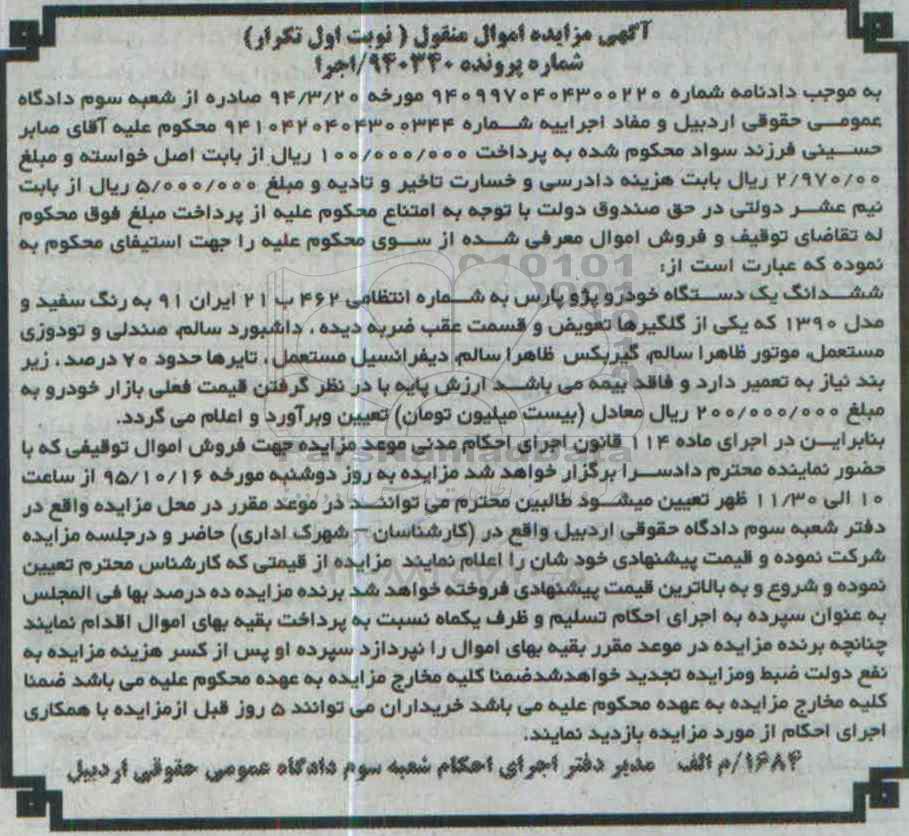 آگهی مزایده اموال منقول ( نوبت اول تکرار)
شماره پرونده ۹۴۰۳۴۰/اجرا
به موجب دادنامه شماره ۹۴۰۹۹۷۰۴۰۴۳۰۰۲۲۰ مورخه ۹۴/۳/۲۰ صادره از شعبه سوم دادگاه
عمومی حقوقی اردبیل و مفاد اجراییه شماره ۹۴۱۰۴۲۰۴۰۴۳۰۰۳۴۴ محکوم علیه آقای صابر
حسینی فرزند سواد محکوم شده به پرداخت ۱۰۰/۰۰۰/۰۰۰ ریال از بابت اصل خواسته و مبلغ
۲/۹۷۰/۰۰ ریال بابت هزینه دادرسی و خسارت تاخیر و تادیه و مبلغ ۵/۰۰۰/۰۰۰ ریال از بابت
نیم عشر دولتی در حق صندوق دولت با توجه به امتناع محکوم علیه از پرداخت مبلغ فوق محکوم
له تقاضای توقیف و فروش اموال معرفی شده از سوی محکوم علیه را جهت استیفای محکوم به
نموده که عبارت است از:
ششدانگ یک دستگاه خودرو پژو پارس به شماره انتظامی ۴۶۲ ب ۲۱ ایران ۹۱ به رنگ سفید و
مدل ۱۳۹۰ که یکی از گلگیرها تعویض و قسمت عقب ضربه دیده ، داشبورد سالم، صندلی و تودوزی
مستعمل، موتور ظاهرا سالم، گیربکس ظاهرا سالم، دیفرانسیل مستعمل ، تایرها حدود ۷۰ درصد ، زیر
بند نیاز به تعمیر دارد و فاقد بیمه می باشد ارزش پایه با در نظر گرفتن قیمت فعلی بازار خودرو به
مبلغ ۲۰۰/۰۰۰/۰۰۰ ریال معادل (بیست میلیون تومان) تعیین وبرآورد و اعلام می گردد.
بنابراین در اجرای ماده ۱۱۴ قانون اجرای احکام مدنی موعد مزایده جهت فروش اموال توقیفی که با
حضور نماینده محترم دادسرا برگزار خواهد شد مزایده به روز دوشنبه مورخه ۹۵/۱۰/۱۶ از ساعت
۱۰ الی ۱۱/۳۰ ظهر تعیین میشود طالبین محترم می توانند در موعد مقرر در محل مزایده واقع در
دفتر شعبه سوم دادگاه حقوقی اردبیل واقع در (کارشناسان – شهرک اداری) حاضر و درجلسه مزایده
شرکت نموده و قیمت پیشنهادی خود شان را اعلام نمایند مزایده از قیمتی که کارشناس محترم تعیین
نموده و شروع و به بالاترین قیمت پیشنهادی فروخته خواهد شد برنده مزایده ده درصد بها فی المجلس
به عنوان سپرده به اجرای احکام تسلیم و ظرف یکماه نسبت به پرداخت بقیه بهای اموال اقدام نمایند
چنانچه برنده مزایده در موعد مقرر بقیه بهای اموال را نپردازد سپرده او پس از کسر هزینه مزایده به
نفع دولت ضبط ومزایده تجدید خواهدشدضمنا کلیه مخارج مزایده به عهده محکوم علیه می باشد ضمنا
کلیه مخارج مزایده به عهده محکوم علیه می باشد خریداران می توانند ۵ روز قبل ازمزایده با همکاری
اجرای احکام از مورد مزایده بازدید نمایند.
۱۶۸۴/م الف مدیر دفتر اجرای احکام شعبه سوم دادگاه عمومی حقوقی اردبیل